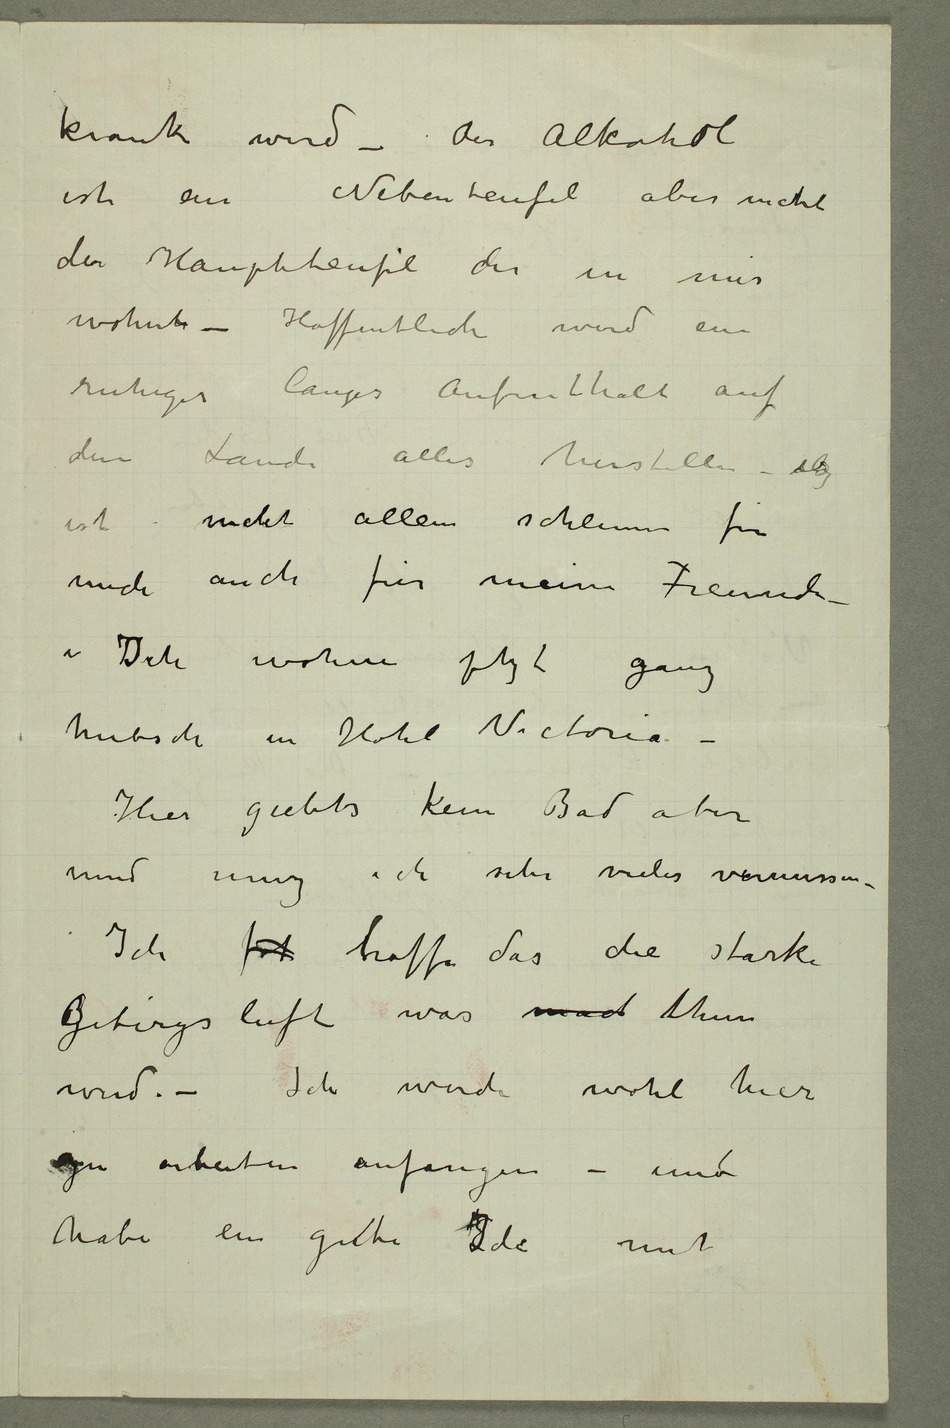 krank wird – der Alkohol
ist ein Nebenteufel aber nicht
der Haupttteufel der in mir
wohnt – Hoffentlich wird ein
ruhiger langer Aufenthalt auf
den Lande alles herstellen –
ist nicht allein schlimm für
mich auch für meine Freunde –
Ich wohne jetzt ganz
hübsch in Hotel Victoria –
Hier giebts kein Bad aber
und muß ich sehr vieles vermissen –
Ich hoffe das die starke
Gebirgsluft was thun
wird. – Ich werde wohl hier
zu arbeiten anfangen – und
habe ein gute Ide mit